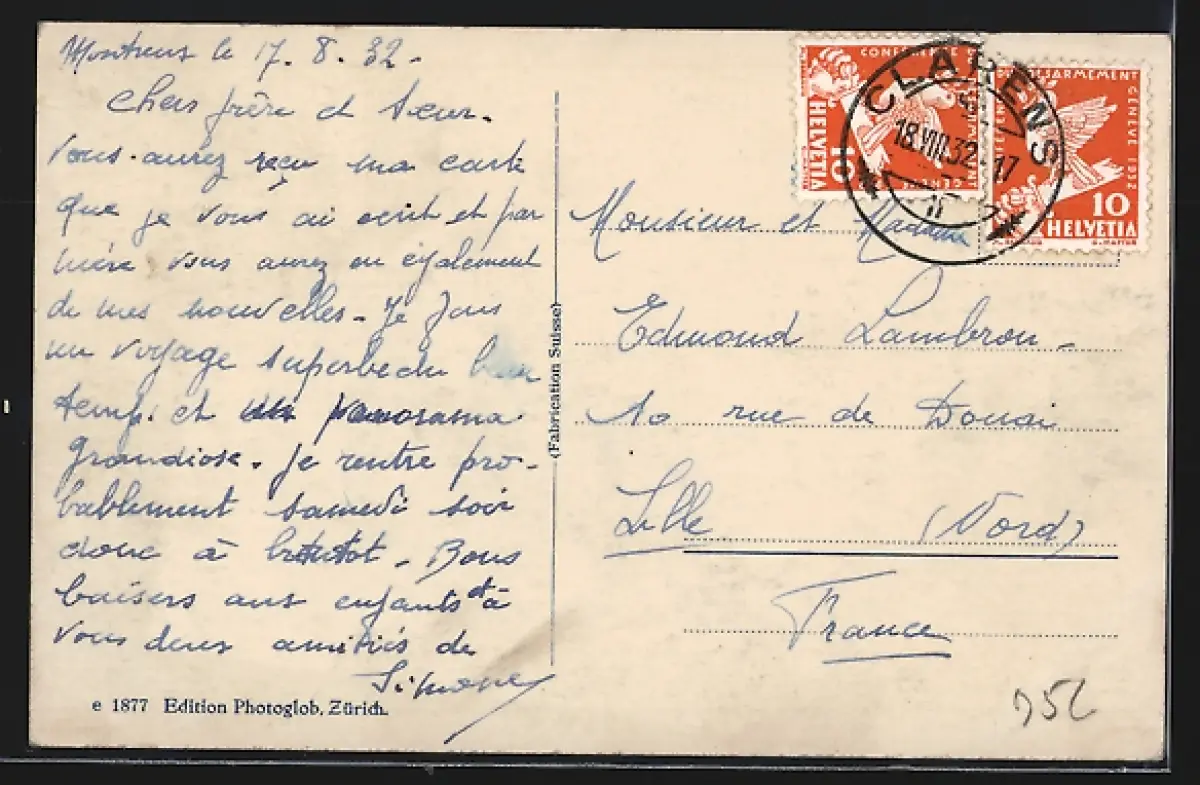 Montreux le 17. 8. 32.
chers frère et sœur.
Vous aurez reçu ma carte
que je vous ai écrit et par
mère vous aurez eu également
de mes nouvelles. Je fais
un voyage superbe du beau
temps et un panorama
grandiose. Je rentre pro-
bablement samedi soir
donc à bientot. Bons
baisers aux enfants et à
vous deux amitiés de
Simone
e 1877 Edition Photoglob, Zürich.
(Fabrication Suisse)
CONFERENCE DU DESARMEMENT GENEVE 1932
10
HELVETIA
CONFERENCE DU DESARMEMENT GENEVE 1932
10
HELVETIA
CLARENS
18.VIII.32.-17
Monsieur et Madame
Edmond Lambron
10 rue de Douai
Lille (Nord)
France